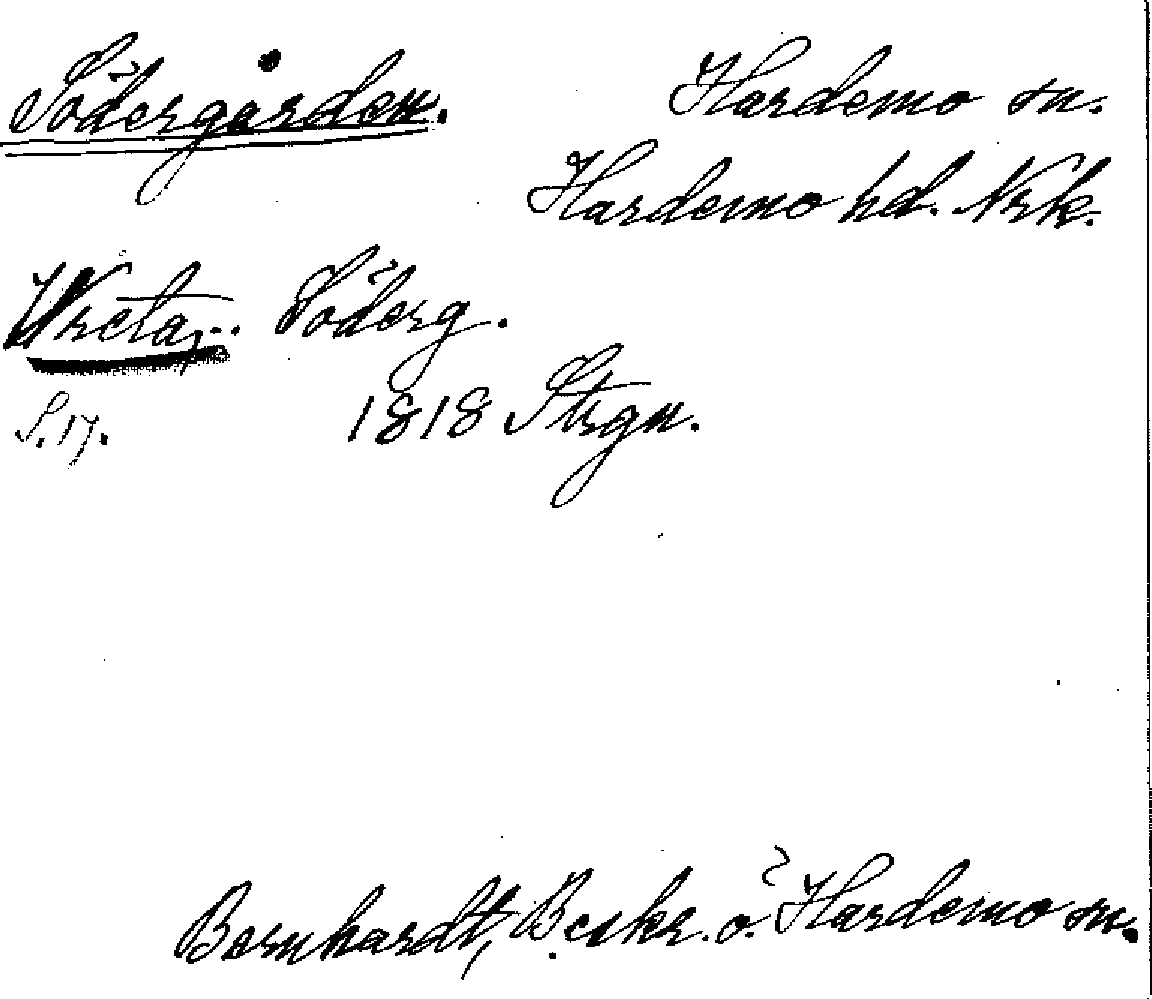 Södergården.
Hardemo sn.
Hardemo hd. Nrk.
Wreta,.. Söderg.
S. 17. 1818 Strgn.
Bernhardt, Beskr. ö. Hardemo sn.